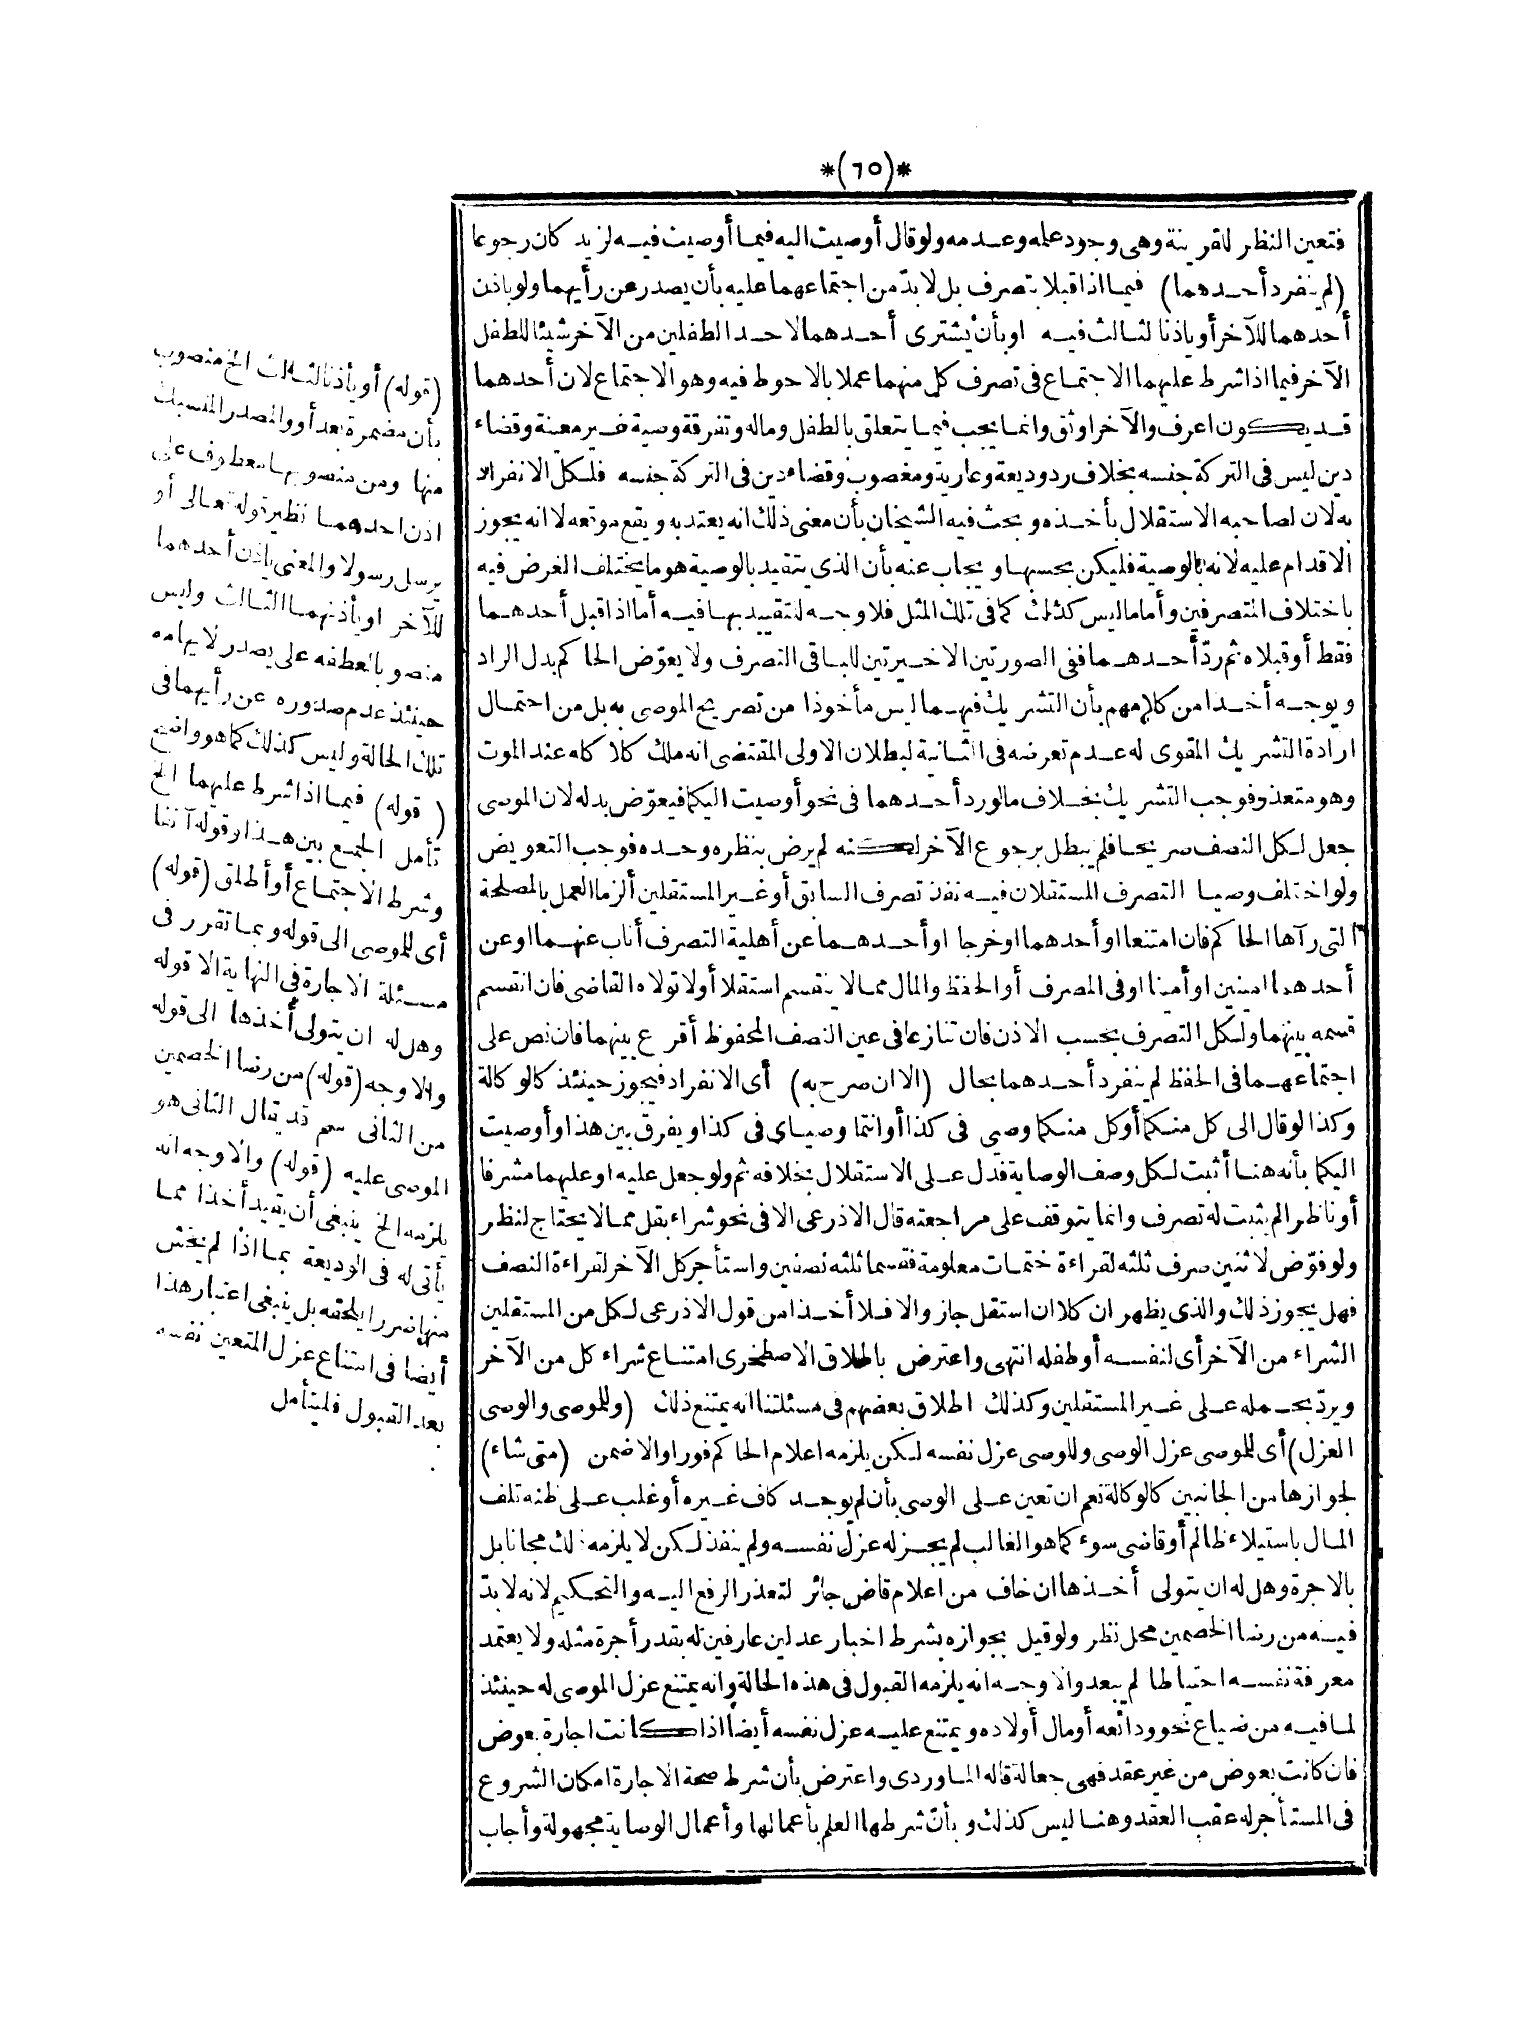 *(٦٥)*
فتعين النظر للقرينة وهى وجود علمه وعدمه ولو قال أوصيت اليه فيما أوصيت فيه لزيد كان رجوعا
(لم ينفرد أحدهما) فيما اذا قبلا بتصرف بل لابدّ من اجتماعهما عليه بأن يصدر عن رأيهما ولو باذن
أحدهما للآخر أو يأذنا لثالث فيه او بأن يشترى أحدهما لاحد الطفلين من الآخر شيئا للطفل
الآخر فيما اذا شرط عليهما الاجتماع فى تصرف كل منهما عملا بالاحوط فيه وهو الاجتماع لان أحدهما
قد يكون اعرف والآخر اوثق وانما يجب فيما يتعلق بالطفل وماله وتفرقة وصية غير معينة وقضاء
دين ليس فى التركة جنسه بخلاف رد وديعة وعارية ومغصوب وقضاء دين فى التركة جنسه فلكل الانفراد
به لان لصاحبه الاستقلال بأخذه وبحث فيه الشيخان بأن معنى ذلك انه يعتد به ويقع موقعه لا انه يجوز
الاقدام عليه لانه بالوصية فليكن بحسبها ويجاب عنه بأن الذى يتقيد بالوصية هو ما يختلف الغرض فيه
باختلاف المتصرفين وأما ما ليس كذلك كما فى تلك المثل فلا وجه لتقييد بها فيه أما اذا قبل أحدهما
فقط أو قبلاه ثم ردّ أحدهما ففى الصورتين الاخيرتين للباقى التصرف ولا يعوّض الحاكم بدل الراد
ويوجه أخذا من كلامهم بأن التشريك فيهما ليس مأخوذا من تصريح الموصى به بل من احتمال
ارادة التشريك المقوى له عدم تعرضه فى الثانية لبطلان الاولى المقتضى انه ملك كلا كله عند الموت
وهو متعذر فوجب التشريك بخلاف ما لو رد أحدهما فى نحو أوصيت اليكما فيعوّض بدله لان الموصى
جعل لكل النصف صريحا فلم يبطل برجوع الآخر لكنه لم يرض بنظره وحده فوجب التعويض
ولو اختلف وصيا التصرف المستقلان فيه نفذ تصرف السابق أو غير المستقلين ألزما العمل بالمصلحة
التى رآها الحاكم فان امتنعا او أحدهما او خرجا او أحدهما عن أهلية التصرف أناب عنهما او عن
أحدهما امينين او أمينا او فى المصرف أو الحفظ والمال مما لا ينقسم استقلا أو لا تولاه القاضى فان انقسم
قسمه بينهما ولكل التصرف بحسب الاذن فان تنازعا فى عين النصف المحفوظ أقرع بينهما فان نص على
اجتماعهما فى الحفظ لم ينفرد أحدهما بحال (الا ان صرح به) أى الانفراد فيجوز حينئذ كالوكالة
وكذا لو قال الى كل منكما أو كل منكما وصيى فى كذا أو انتما وصياى فى كذا ويفرق بين هذا وأوصيت
اليكما بأنه هنا أثبت لكل وصف الوصاية فدل على الاستقلال بخلافه ثم ولو جعل عليه او عليهما مشرفا
أو ناظرا لم يثبت له تصرف وانما يتوقف على مراجعته قال الاذرعى الا فى نحو شراء بقل مما لا يحتاج لنظر
ولو فوّض لاثنين صرف ثلثه لقراءة ختمات معلومة فقسما ثلثه نصفين واستأجر كل الآخر لقراءة النصف
فهل يجوز ذلك والذى يظهر ان كلا ان استقل جاز والا فلا أخذا من قول الاذرعى لكل من المستقلين
الشراء من الآخر أى لنفسه أو طفله انتهى واعترض باطلاق الاصطخرى امتناع شراء كل من الآخر
ويردّ بحمله على غير المستقلين وكذلك اطلاق بعضهم فى مسئلتنا انه يمتنع ذلك (وللموصى والوصى
العزل) أى للموصى عزل الوصى وللوصى عزل نفسه لكن يلزمه اعلام الحاكم فورا والا ضمن (متى شاء)
لجوازها من الجانبين كالوكالة نعم ان تعين على الوصى بأن لم يوجد كاف غيره أو غلب على ظنه تلف
المال باستيلاء ظالم أو قاضى سوء كما هو الغالب لم يجز له عزل نفسه ولم ينفذ لكن لا يلزمه ذلك مجانا بل
بالاجرة وهل له ان يتولى أخذها ان خاف من اعلام قاض جائر لتعذر الرفع اليه والتحكيم لانه لابدّ
فيه من رضا الخصمين محل نظر ولو قيل بجوازه بشرط اخبار عدلين عارفين له بقدر أجرة مثله ولا يعتمد
معرفة نفسه احتياطا لم يبعد والاوجه انه يلزمه القبول فى هذه الحالة وانه يمتنع عزل الموصى له حينئذ
لما فيه من ضياع نحو ودائعه أو مال أولاده ويمتنع عليه عزل نفسه أيضا اذا كانت اجارة بعوض
فان كانت بعوض من غير عقد فهى جعالة قاله الماوردى واعترض بأن شرط صحة الاجارة امكان الشروع
فى المستأجر له عقب العقد وهنا ليس كذلك وبأنّ شرطها العلم بأعمالها وأعمال الوصاية مجهولة وأجاب
(قوله) أو يأذنا لثالث الخ منصوب
بأن مضمرة بعد أو والمصدر المنسبك
منها ومن منصوبها معطوف على
اذن احدهما نظير قوله تعالى أو
يرسل رسولا والمعنى باذن أحدهما
للآخر او باذنهما الثالث وليس
منصوبا بعطفه على يصدر لايهامه
حينئذ عدم صدوره عن رأيهما فى
تلك الحالة وليس كذلك كما هو واضح
(قوله) فيما اذا شرط عليهما الخ
تأمل الجمع بين هذا وقوله آنفا
وشرط الاجتماع أو أطلق (قوله)
أى للموصى الى قوله وبما تقرر فى
مسئلة الاجارة فى النهاية الا قوله
وهل له ان يتولى أخذها الى قوله
والاوجه (قوله) من رضا الخصمين
من الثانى سم قد يقال الثانى هو
الموصى عليه (قوله) والاوجه انه
يلزمه الخ ينبغى أن يقيد أخذا مما
يأتى له فى الوديعة بما اذا لم يخش
منها ضررا يلحقه بل ينبغى اعتبار هذا
أيضا فى امتناع عزل المتعين نفسه
بعد القبول فليتأمل